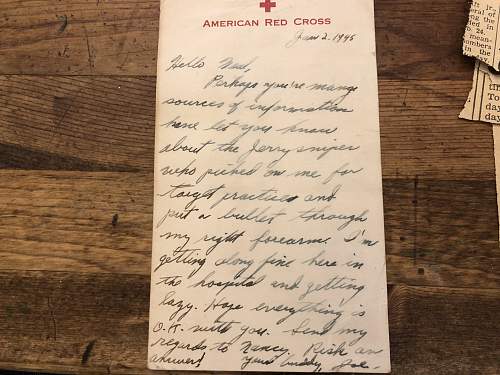 AMERICAN RED CROSS
Jan 2. 1945
Hello Ned,
Perhaps you're many
sources of information
have let you know
about the Jerry sniper
who picked on me for
target practice and
put a bullet through
my right forearm. I'm
getting along fine here in
the hospital and getting
lazy. Hope everything is
O.K. with you. Send my
regards to Nancy. Risk an
answer! Your buddy, Joe.
ft jr.,
eral of
ng the
ded in
o. 24.
mean-
mbers
in the
day